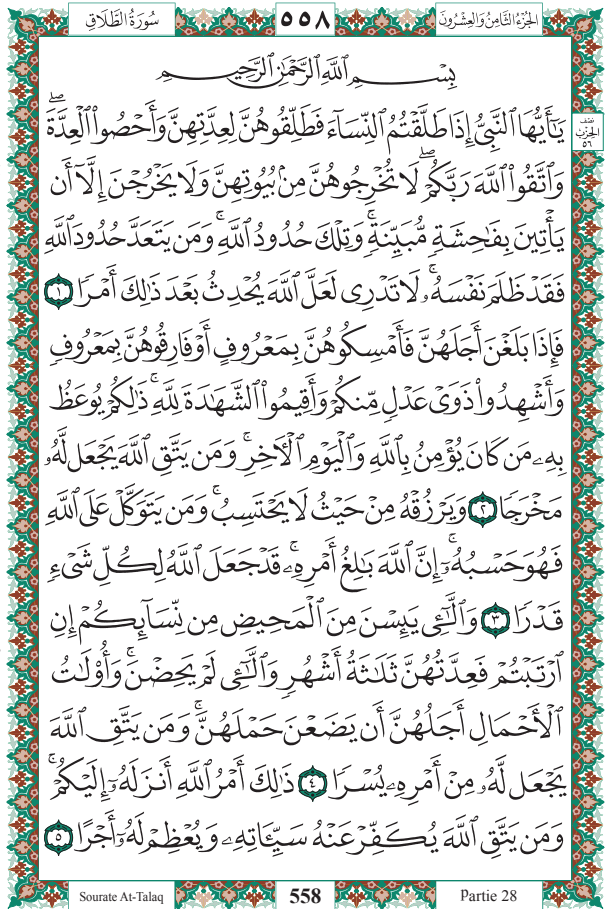 سُورَةُ الطَّلَاقِ ٥٥٨ الجُزْءُ الثَّامِنُ وَالعِشْرُونَ
بِسْمِ ٱللَّهِ ٱلرَّحْمَٰنِ ٱلرَّحِيمِ
يَٰٓأَيُّهَا ٱلنَّبِىُّ إِذَا طَلَّقْتُمُ ٱلنِّسَآءَ فَطَلِّقُوهُنَّ لِعِدَّتِهِنَّ وَأَحْصُوا۟ ٱلْعِدَّةَ ۖ
نصف
الحزب
٥٦
وَٱتَّقُوا۟ ٱللَّهَ رَبَّكُمْ ۖ لَا تُخْرِجُوهُنَّ مِنۢ بُيُوتِهِنَّ وَلَا يَخْرُجْنَ إِلَّآ أَن
يَأْتِينَ بِفَٰحِشَةٍ مُّبَيِّنَةٍ ۚ وَتِلْكَ حُدُودُ ٱللَّهِ ۚ وَمَن يَتَعَدَّ حُدُودَ ٱللَّهِ
فَقَدْ ظَلَمَ نَفْسَهُۥ ۚ لَا تَدْرِى لَعَلَّ ٱللَّهَ يُحْدِثُ بَعْدَ ذَٰلِكَ أَمْرًا ١
فَإِذَا بَلَغْنَ أَجَلَهُنَّ فَأَمْسِكُوهُنَّ بِمَعْرُوفٍ أَوْ فَارِقُوهُنَّ بِمَعْرُوفٍ
وَأَشْهِدُوا۟ ذَوَىْ عَدْلٍ مِّنكُمْ وَأَقِيمُوا۟ ٱلشَّهَٰدَةَ لِلَّهِ ۚ ذَٰلِكُمْ يُوعَظُ
بِهِۦ مَن كَانَ يُؤْمِنُ بِٱللَّهِ وَٱلْيَوْمِ ٱلْءَاخِرِ ۚ وَمَن يَتَّقِ ٱللَّهَ يَجْعَل لَّهُۥ
مَخْرَجًا ٢ وَيَرْزُقْهُ مِنْ حَيْثُ لَا يَحْتَسِبُ ۚ وَمَن يَتَوَكَّلْ عَلَى ٱللَّهِ
فَهُوَ حَسْبُهُۥٓ ۚ إِنَّ ٱللَّهَ بَٰلِغُ أَمْرِهِۦ ۚ قَدْ جَعَلَ ٱللَّهُ لِكُلِّ شَىْءٍ
قَدْرًا ٣ وَٱلَّٰٓـِٔى يَئِسْنَ مِنَ ٱلْمَحِيضِ مِن نِّسَآئِكُمْ إِنِ
ٱرْتَبْتُمْ فَعِدَّتُهُنَّ ثَلَٰثَةُ أَشْهُرٍ وَٱلَّٰٓـِٔى لَمْ يَحِضْنَ ۚ وَأُو۟لَٰتُ
ٱلْأَحْمَالِ أَجَلُهُنَّ أَن يَضَعْنَ حَمْلَهُنَّ ۚ وَمَن يَتَّقِ ٱللَّهَ
يَجْعَل لَّهُۥ مِنْ أَمْرِهِۦ يُسْرًا ٤ ذَٰلِكَ أَمْرُ ٱللَّهِ أَنزَلَهُۥٓ إِلَيْكُمْ ۚ
وَمَن يَتَّقِ ٱللَّهَ يُكَفِّرْ عَنْهُ سَيِّـَٔاتِهِۦ وَيُعْظِمْ لَهُۥٓ أَجْرًا ٥
Sourate At-Talaq 558 Partie 28